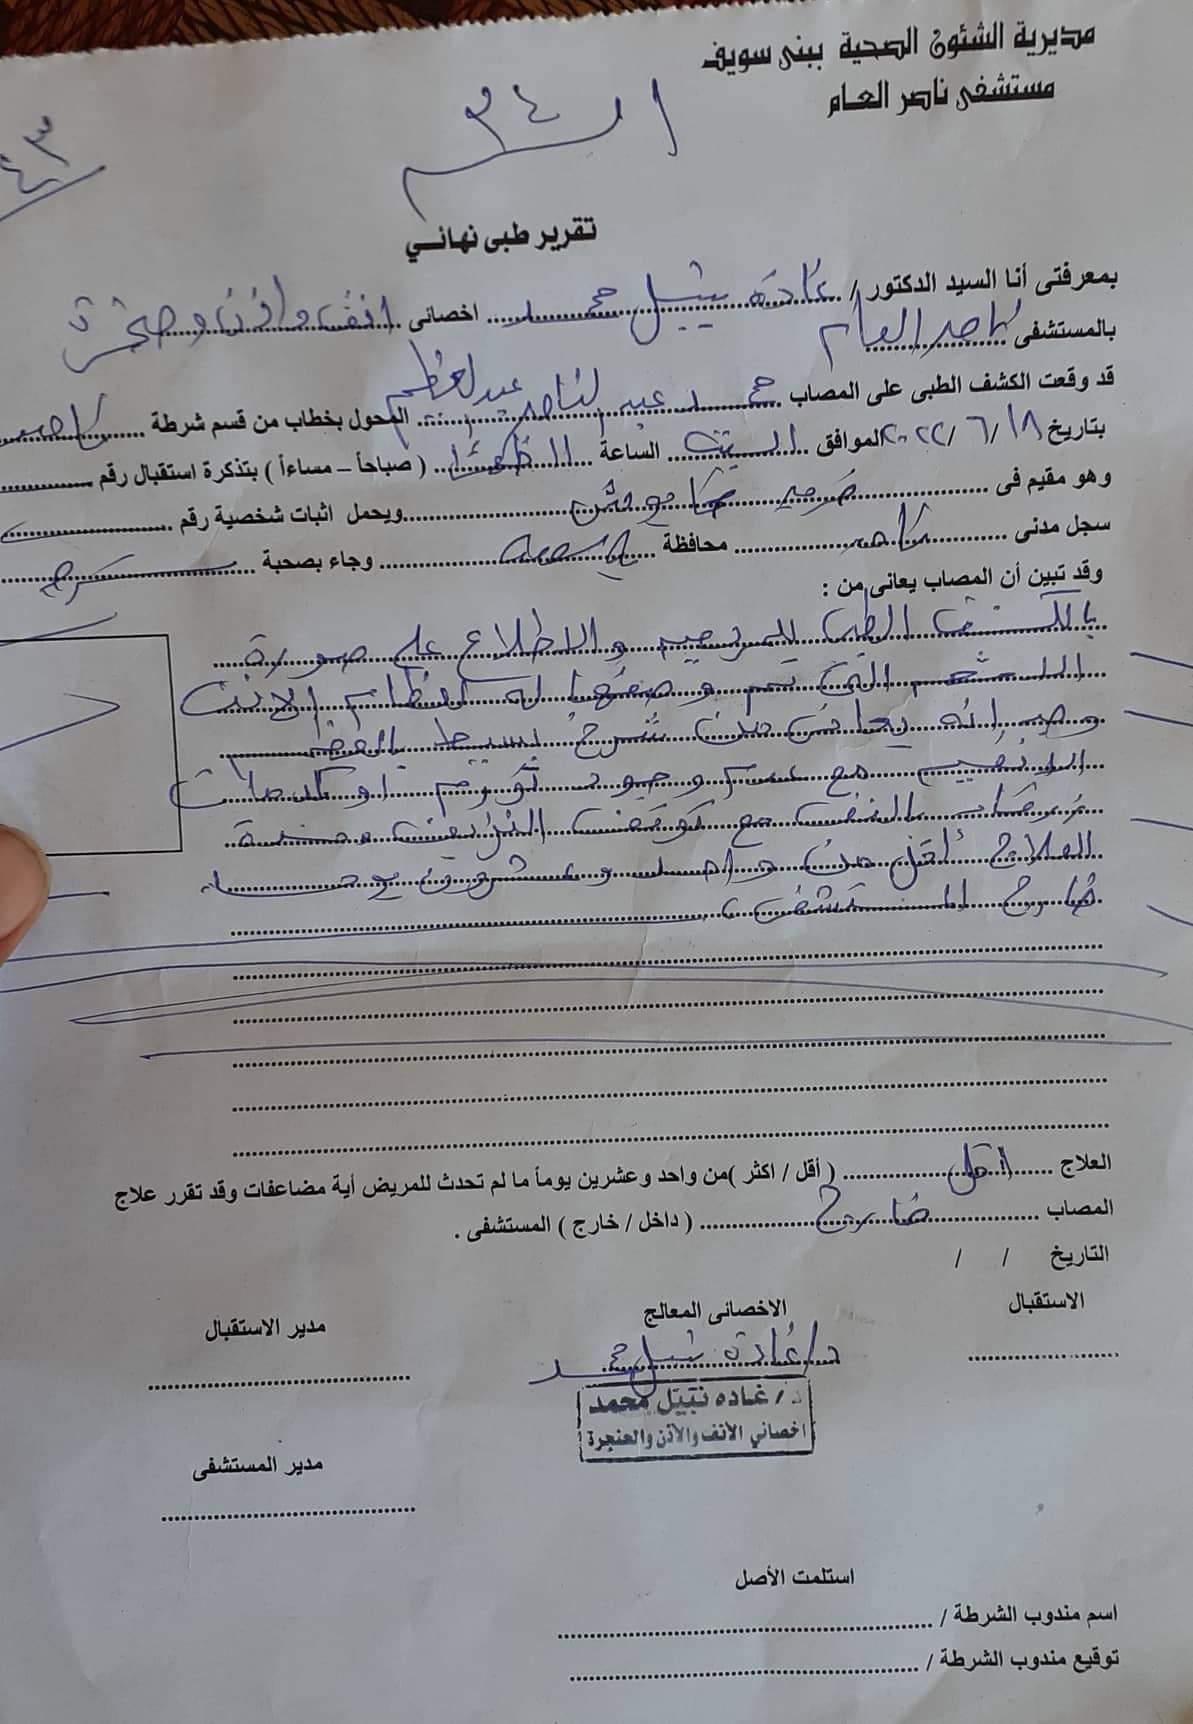 مديرية الشئون الصحية ببنى سويف
مستشفى ناصر العام
٣٤
٤٣
تقرير طبى نهائي
بمعرفتى أنا السيد الدكتور / غادة نبيل محمد اخصائى انف واذن وحنجرة
بالمستشفى ناصر العام
قد وقعت الكشف الطبى على المصاب محمد عبد الناصر عبد العظيم المحول بخطاب من قسم شرطة ناصر
بتاريخ ١٨ / ٦ / ٢٠٢٢ الموافق السبت الساعة ( صباحاً – مساءاً ) بتذكرة استقبال رقم
وهو مقيم فى ويحمل اثبات شخصية رقم
سجل مدنى ناصر محافظة وجاء بصحبة
وقد تبين أن المصاب يعانى من :
بالكشف الطبى للمريض والاطلاع على صورة
الاشعة التى تم وصفها له لعظام الانف
وجد انه يعانى من شرخ بسيط بالعظم
الانفى مع عدم وجود تورم او كدمات
بالانف مع توقف النزيف ومدة
العلاج أقل من واحد وعشرون يوما
خارج المستشفى
العلاج اقل ( أقل / اكثر ) من واحد وعشرين يوماً ما لم تحدث للمريض أية مضاعفات وقد تقرر علاج
المصاب خارج ( داخل / خارج ) المستشفى .
التاريخ / /
الاستقبال الاخصائى المعالج مدير الاستقبال
د/ غادة نبيل محمد
د / غاده نبيل محمد
اخصائي الأنف والأذن والحنجرة
مدير المستشفى
استلمت الأصل
اسم مندوب الشرطة /
توقيع مندوب الشرطة /